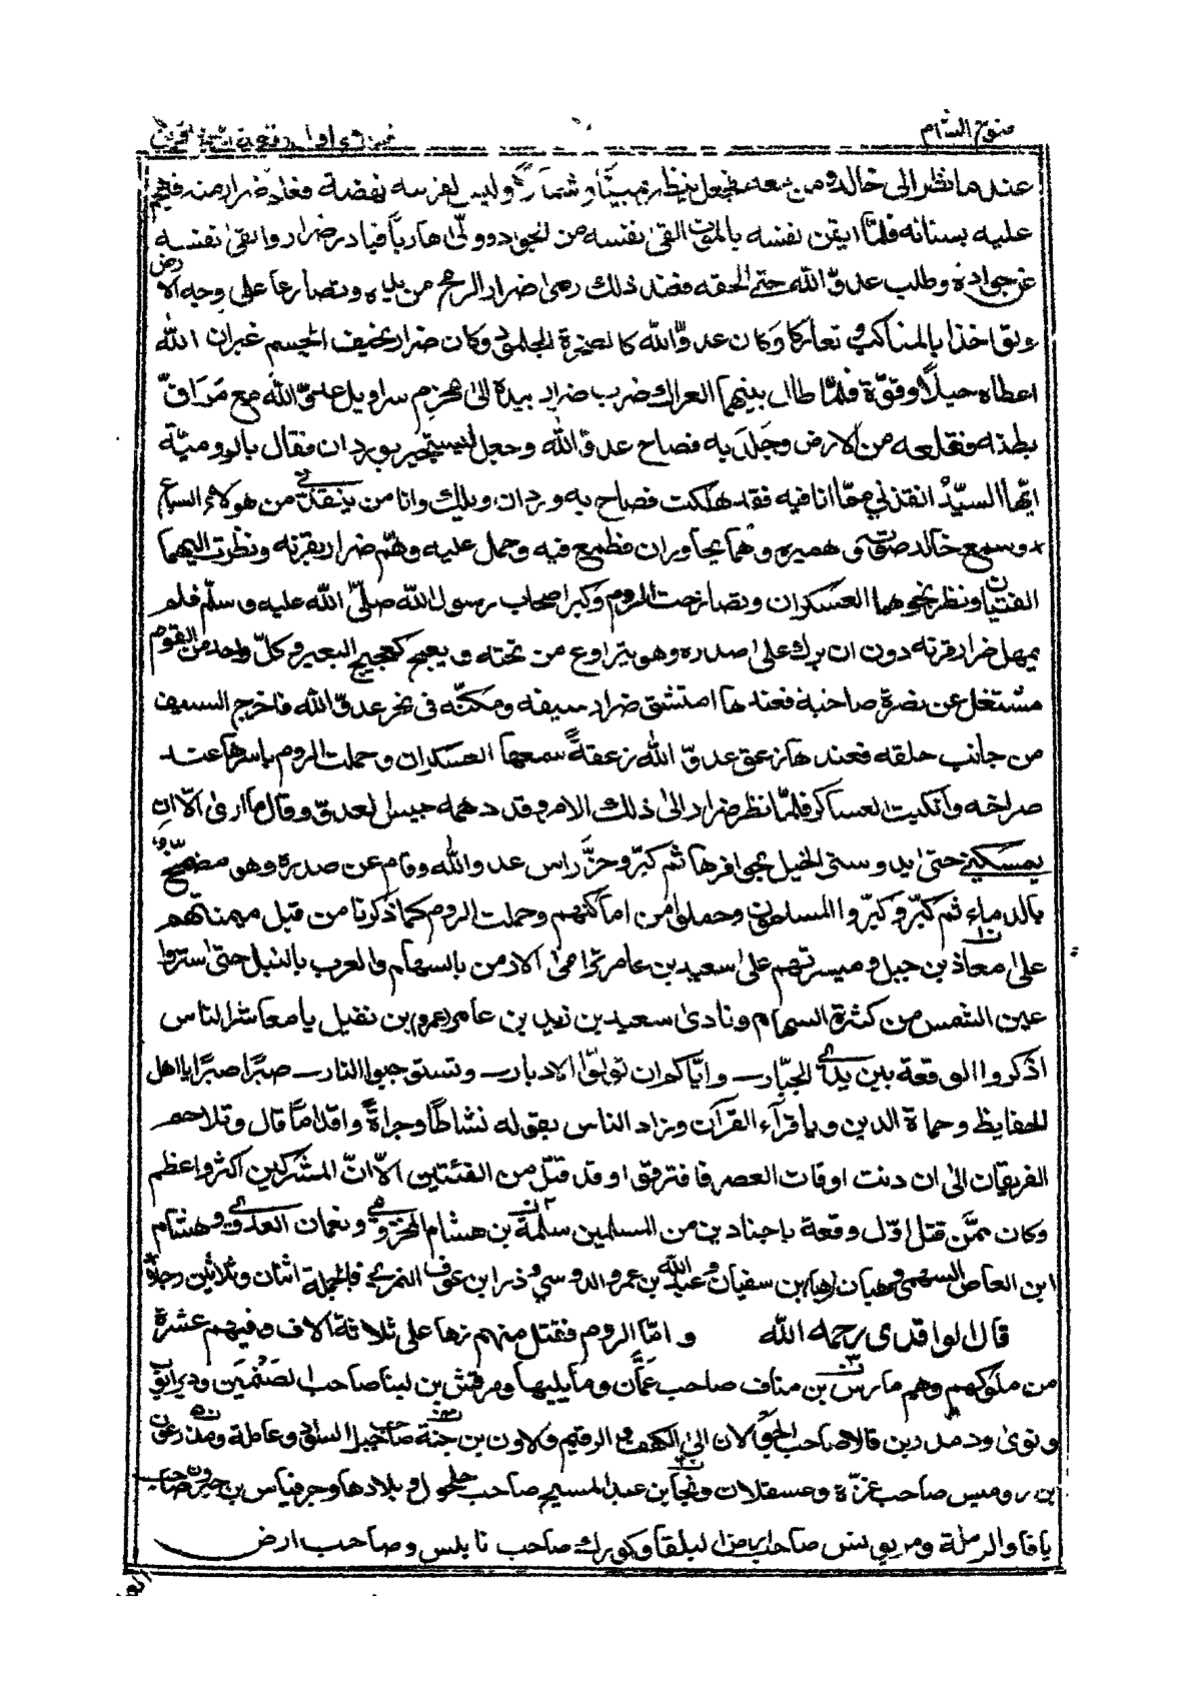 فتوح الشام
عند ما نظر الى خالد ومن معه فجعل ينظر يمينًا وشمالًا وليس لفرسه نهضة فغلبة ضرار منه فهجم
عليه بسنانه فلمّا ايقن نفسه بالموت القى نفسه من الجواد وولّى هاربًا فبادر ضرار والقى نفسه
عن جواده وطلب عدوّ الله حتى لحقه فعند ذلك رمى ضرار الرمح من يده وتصارعا على وجه الارض
وتواخذا بالمناكب وتعاركا وكان عدوّ الله كالصخرة الجلمود وكان ضرار نحيف الجسم غير ان الله
اعطاه حيلًا وقوّة فلمّا طال بينهما العراك ضرب ضرار بيده الى محزم سراويل عدوّ الله مع مراقّ
بطنه فقلعه من الارض وجَلَدَ به فصاح عدوّ الله وجعل ليستجير بوردان فقال بالروميّة
ايّها السيّدُ انقذني ممّا انا فيه فقد هلكت فصاح به وردان ويلك وانا من ينقذني من هولاء السباع
وسمع خالد صوته وهميره وهما يحاوران فطمع فيه وحمل عليه وهمّ ضرار بقرنه ونظرت اليهما
الفتيان ونظر نحوهما العسكران وتصارخت الروم وكبر اصحاب رسول الله صلّى الله عليه وسلّم فلم
يمهل ضرار قرنه دون ان برك على صدره وهو يتراوع من تحته ويعج كعجيج البعير وكلّ واحد من القوم
مشتغل عن نصرة صاحبه فعندها امتشق ضرار سيفه ومكنّه في نحر عدوّ الله فاخرج السيف
من جانب حلقه فعندها زعق عدوّ الله زعقةً سمعها العسكران وحملت الروم باسرها عند
صراخه وانكبت العساكر فلمّا نظر ضرار الى ذلك الامر وقد دهمه جيش العدوّ وقال ما ارى الّا ان
يمسكني حتى ايد وسنى الخيل بحوافرها ثم كبّر وحزّ راس عدو الله وقام عن صدره وهو مضمخ
بالدماء ثم كبّر وكبّروا المسلمون وحملوا من اماكنهم وحملت الروم كما ذكرنا من قبل ميمنتهم
على معاذ بن جبل وميسرتهم على سعيد بن عامر ترامى الارمن بالسهام والعرب بالنبل حتى استروا
عين الشمس من كثرة السهام ونادى سعيد بن زيد بن عامر (عمرو) بن نفيل يا معاشر الناس
اذكروا الوقعة بين يدى الجبّار وايّاكم ان تولوّا الادبار وتستوجبوا النار صبرًا صبرًا يا اهل
الحفايظ وحماة الدين ويا قراء القرآن وزاد الناس بقوله نشاطًا وجراةً واقدامًا قال وتلاحم
الفريقان الى ان دنت اوقات العصر فافترقوا وقد قتل من الفئتين الّا انّ المشركين اكثر واعظم
وكان ممّن قتل اوّل وقعة باجنادين من المسلمين سلمة بن هشام المخزومي ونعمان العدوي وهشام
ابن العاص السهمي وهبان بن سفيان وعبد الله بن عمرو الدوسي وذر ابن عوف النمري فالجملة اثنان وثلاثين رجلا
قال الواقدى رحمه الله و امّا الروم فقتل منهم زهاء على ثلاثة آلاف وفيهم عشرة
من ملوكهم وهم مارس بن مناف صاحب عمّان وما يليها ومرقش بن لينا صاحب الصنمين ودير ايوب
ونوى ودمل دين قالا صاحب الجولان الى الكهف والرقيم ولاون بن جنة صاحب جبل السواد وعاملة
بن روميس صاحب غزّة وعسقلان ونجا بن عبد المسيح صاحب حلحول وبلادها وجرفياس بن جبرون صاحب
يافا والرملة ومريونس صاحب ارض البلقا وكورك صاحب نابلس وصاحب ارض